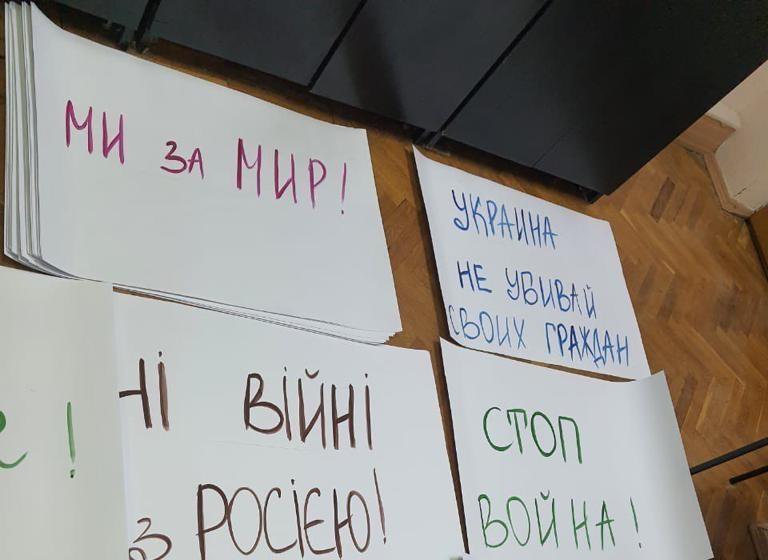 МИ ЗА МИР!
УКРАИНА
НЕ УБИВАЙ
СВОИХ ГРАЖДАН
НІ ВІЙНІ
З РОСІЄЮ!
СТОП
ВОЙНА!
!